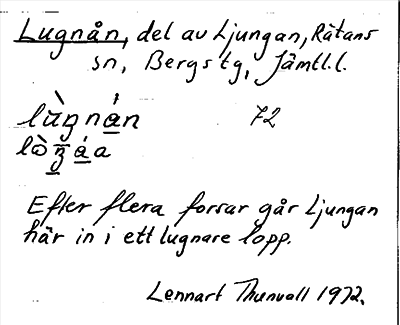 Lugnån, del av Ljungan, Rätans
sn, Bergs tg, Jämtl.l.
lùgnán 72
lògáa
Efter flera forsar går Ljungan
här in i ett lugnare lopp.
Lennart Thunvall 1972.